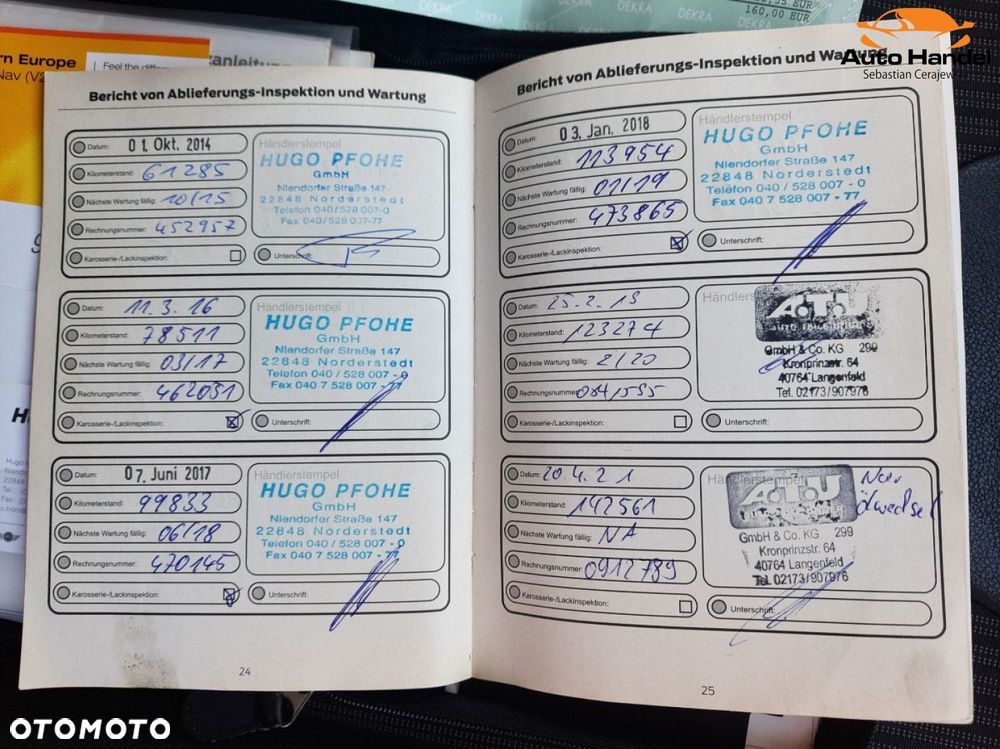 DEKRA
160,00 EUR
Auto Handel
Sebastian Cerajew
rn Europe
Nav (V2
Feel the
Bericht von Ablieferungs-Inspektion und Wartung
Datum: 01. Okt. 2014
Kilometerstand: 61285
Nächste Wartung fällig: 10/15
Rechnungsnummer: 452957
Karosserie-/Lackinspektion:
Händlerstempel
HUGO PFOHE
GmbH
Niendorfer Straße 147
22848 Norderstedt
Telefon 040/528 007-0
Fax 040/528 007-77
Unterschrift:
Datum: 11.3.16
Kilometerstand: 78511
Nächste Wartung fällig: 03/17
Rechnungsnummer: 462031
Karosserie-/Lackinspektion:
Händlerstempel
HUGO PFOHE
GmbH
Niendorfer Straße 147
22848 Norderstedt
Telefon 040 / 528 007 - 0
Fax 040 7 528 007 - 77
Unterschrift:
Datum: 07. Juni 2017
Kilometerstand: 99833
Nächste Wartung fällig: 06/18
Rechnungsnummer: 470145
Karosserie-/Lackinspektion:
Händlerstempel
HUGO PFOHE
GmbH
Niendorfer Straße 147
22848 Norderstedt
Telefon 040 / 528 007 - 0
Fax 040 7 528 007 - 77
Unterschrift:
24
Bericht von Ablieferungs-Inspektion und Wartung
Datum: 03. Jan. 2018
Kilometerstand: 113954
Nächste Wartung fällig: 01/19
Rechnungsnummer: 473865
Karosserie-/Lackinspektion:
Händlerstempel
HUGO PFOHE
GmbH
Niendorfer Straße 147
22848 Norderstedt
Telefon 040 / 528 007 - 0
Fax 040 7 528 007 - 77
Unterschrift:
Datum: 25.2.19
Kilometerstand: 123274
Nächste Wartung fällig: 2/20
Rechnungsnummer:
Karosserie-/Lackinspektion:
ATU
GmbH & Co. KG 299
Kronprinzstr. 64
40764 Langenfeld
Tel. 02173/907976
Unterschrift:
Datum: 20.4.21
Kilometerstand: 142561
Nächste Wartung fällig: NA
Rechnungsnummer: 0912789
Karosserie-/Lackinspektion:
Händlerstempel
ATU
GmbH & Co. KG 299
Kronprinzstr. 64
40764 Langenfeld
Tel. 02173/907976
Nur
Ölwechsel
Unterschrift:
25
OTOMOTO